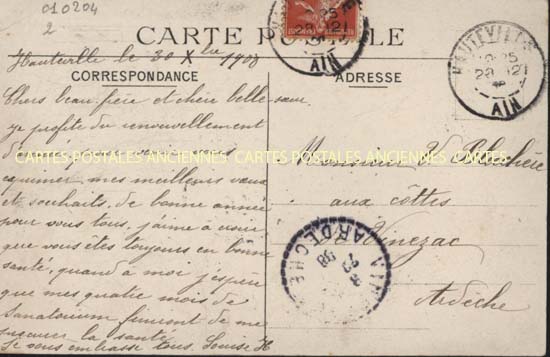 010204
2
CARTE POSTALE
HAUTEVILLE
AIN
Hauteville le 30 Xbre 1908
CORRESPONDANCE
ADRESSE
HAUTEVILLE
AIN
Chers beau-frère et chère belle-sœur
je profite du renouvellement
d'année pour vous
CARTES POSTALES ANCIENNES CARTES POSTALES ANCIENNES CARTES POSTALES ANCIENNES
exprimer mes meilleurs vœux
et souhaits de bonne année
pour vous tous, j'aime à croire
que vous êtes toujours en bonne
santé, quand à moi j'espère
que mes quatre mois de
sanatorium finiront de me
procurer la santé
Je vous embrasse tous, Louise H
Monsieur V. Blachère
aux côttes
Vinezac
Ardèche
ARDECHE